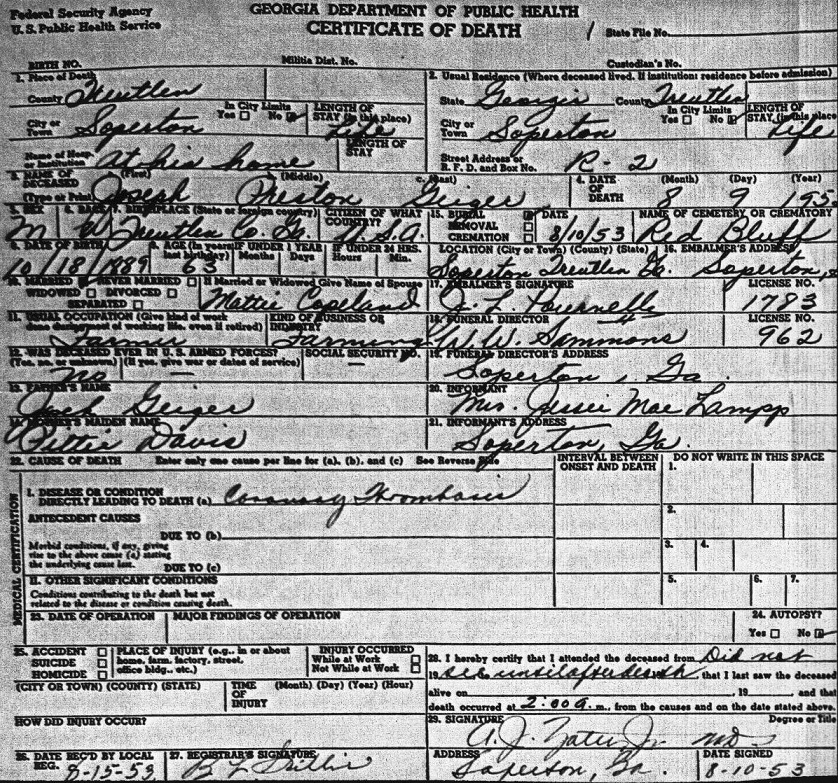 Federal Security Agency
U. S. Public Health Service
GEORGIA DEPARTMENT OF PUBLIC HEALTH
CERTIFICATE OF DEATH
State File No.
BIRTH NO. Militia Dist. No. Custodian's No.
1. Place of Death
County Treutlen
City or Town Soperton
In City Limits Yes No
LENGTH OF STAY (in this place) Life
Name of Hosp. or Institution At his home
LENGTH OF STAY
2. Usual Residence (Where deceased lived. If institution: residence before admission)
State Georgia County Treutlen
City or Town Soperton
In City Limits Yes No
LENGTH OF STAY (in this place) Life
Street Address or R. F. D. and Box No. R-2
3. NAME OF DECEASED (Type or Print) (First) (Middle) c. (Last)
Joseph Preston Geiger
4. DATE OF DEATH (Month) (Day) (Year)
8 9 195
5. SEX M
6. RACE W
7. BIRTHPLACE (State or foreign country) Treutlen Co. Ga.
CITIZEN OF WHAT COUNTRY? U.S.A.
15. BURIAL REMOVAL CREMATION
DATE 8/10/53
NAME OF CEMETERY OR CREMATORY Red Bluff
8. DATE OF BIRTH 10/18/1889
9. AGE (In years last birthday) 63
IF UNDER 1 YEAR Months Days
IF UNDER 24 HRS. Hours Min.
LOCATION (City or Town) (County) (State) Soperton Treutlen Ga.
16. EMBALMER'S ADDRESS Soperton,
10. MARRIED NEVER MARRIED
WIDOWED DIVORCED
SEPARATED
If Married or Widowed Give Name of Spouse
Mattie Copeland
17. EMBALMER'S SIGNATURE
LICENSE NO. 1783
11. USUAL OCCUPATION (Give kind of work done during most of working life, even if retired)
Farmer
KIND OF BUSINESS OR INDUSTRY Farming
18. FUNERAL DIRECTOR W. W. Sammons
LICENSE NO. 962
12. WAS DECEASED EVER IN U. S. ARMED FORCES?
(Yes, no, unknown) (If yes, give war or dates of service)
No —
SOCIAL SECURITY NO. —
19. FUNERAL DIRECTOR'S ADDRESS
Soperton, Ga.
13. FATHER'S NAME
Jack Geiger
20. INFORMANT
Mrs. Jessie Mae Lampp
14. MOTHER'S MAIDEN NAME
Davis
21. INFORMANT'S ADDRESS
Soperton, Ga.
22. CAUSE OF DEATH Enter only one cause per line for (a), (b), and (c) See Reverse Side
INTERVAL BETWEEN ONSET AND DEATH
DO NOT WRITE IN THIS SPACE
1.
2.
3. 4.
5. 6. 7.
MEDICAL CERTIFICATION
I. DISEASE OR CONDITION DIRECTLY LEADING TO DEATH (a) Coronary Thrombosis
ANTECEDENT CAUSES
DUE TO (b)
Morbid conditions, if any, giving rise to the above cause (a) stating the underlying cause last.
DUE TO (c)
II. OTHER SIGNIFICANT CONDITIONS
Conditions contributing to the death but not related to the disease or condition causing death.
23. DATE OF OPERATION MAJOR FINDINGS OF OPERATION
24. AUTOPSY?
Yes No
25. ACCIDENT
SUICIDE
HOMICIDE
PLACE OF INJURY (e.g., in or about home, farm, factory, street, office bldg., etc.)
INJURY OCCURRED
While at Work
Not While at Work
(CITY OR TOWN) (COUNTY) (STATE)
TIME OF INJURY (Month) (Day) (Year) (Hour)
HOW DID INJURY OCCUR?
28. I hereby certify that I attended the deceased from Did not
19 see until after death that I last saw the deceased
alive on , 19 and that
death occurred at 2:00 a.m., from the causes and on the date stated above.
29. SIGNATURE Degree or Title
MD
26. DATE REC'D BY LOCAL REG. 8-15-53
27. REGISTRAR'S SIGNATURE
ADDRESS Soperton, Ga.
DATE SIGNED 8-10-53